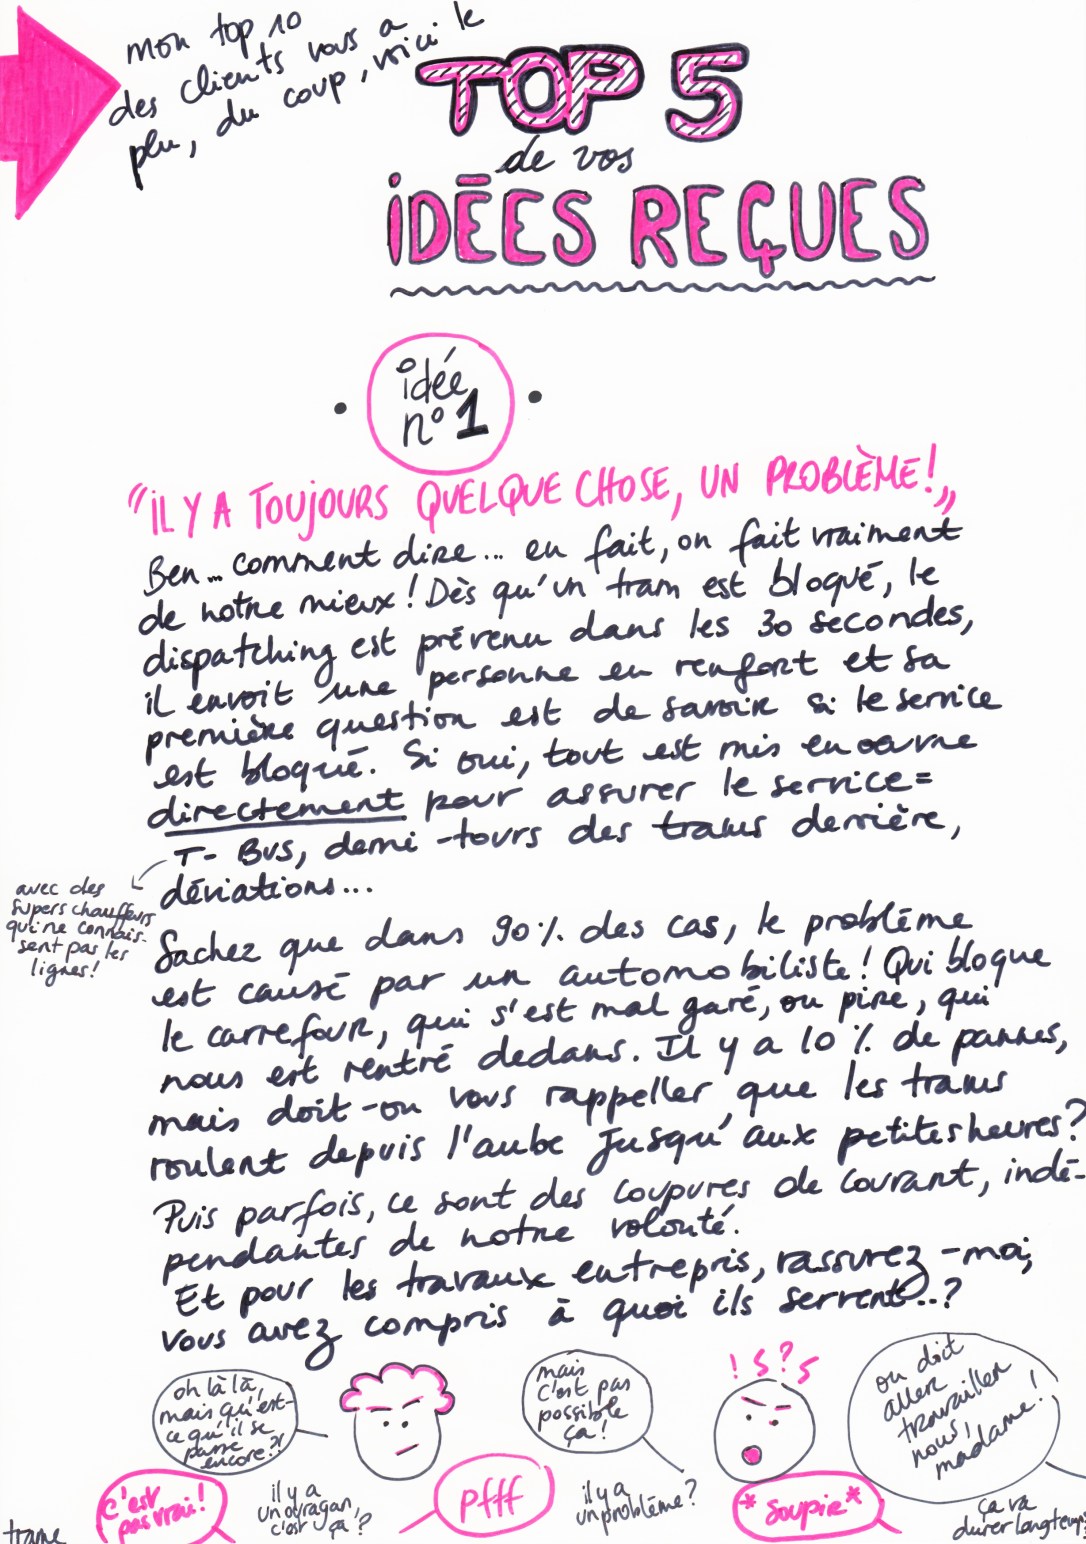 mon top 10
des clients vous a
plu, du coup, voici le
TOP 5
de vos
iDÉES REÇUES
idée
n° 1
"iL Y A TOUJOURS QUELQUE CHOSE, UN PROBLÈME!"
Ben... comment dire... en fait, on fait vraiment
de notre mieux! Dès qu'un tram est bloqué, le
dispatching est prévenu dans les 30 secondes,
il envoit une personne en renfort et sa
première question est de savoir si le service
est bloqué. Si oui, tout est mis en oeuvre
directement pour assurer le service =
T-Bus, demi-tours des trams derrière,
déviations...
avec des
supers chauffeurs
qui ne connais-
sent pas les
lignes!
Sachez que dans 90% des cas, le problème
est causé par un automobiliste! Qui bloque
le carrefour, qui s'est mal garé, ou pire, qui
nous est rentré dedans. Il y a 10% de pannes,
mais doit-on vous rappeller que les trams
roulent depuis l'aube jusqu'aux petites heures?
Puis parfois, ce sont des coupures de courant, indé-
pendantes de notre volonté.
Et pour les travaux entrepris, rassurez-moi,
vous avez compris à quoi ils servent..?
oh là là,
mais qu'est-
ce qu'il se
passe
encore?!
mais
c'est pas
possible
ça!
! S ? S
on doit
aller
travailler
nous,
madame!
c'est
pas vrai!
il y a
un ouragan,
c'est ça?
pfff
il y a
un problème?
*soupir*
ça va
durer longtemps
trame